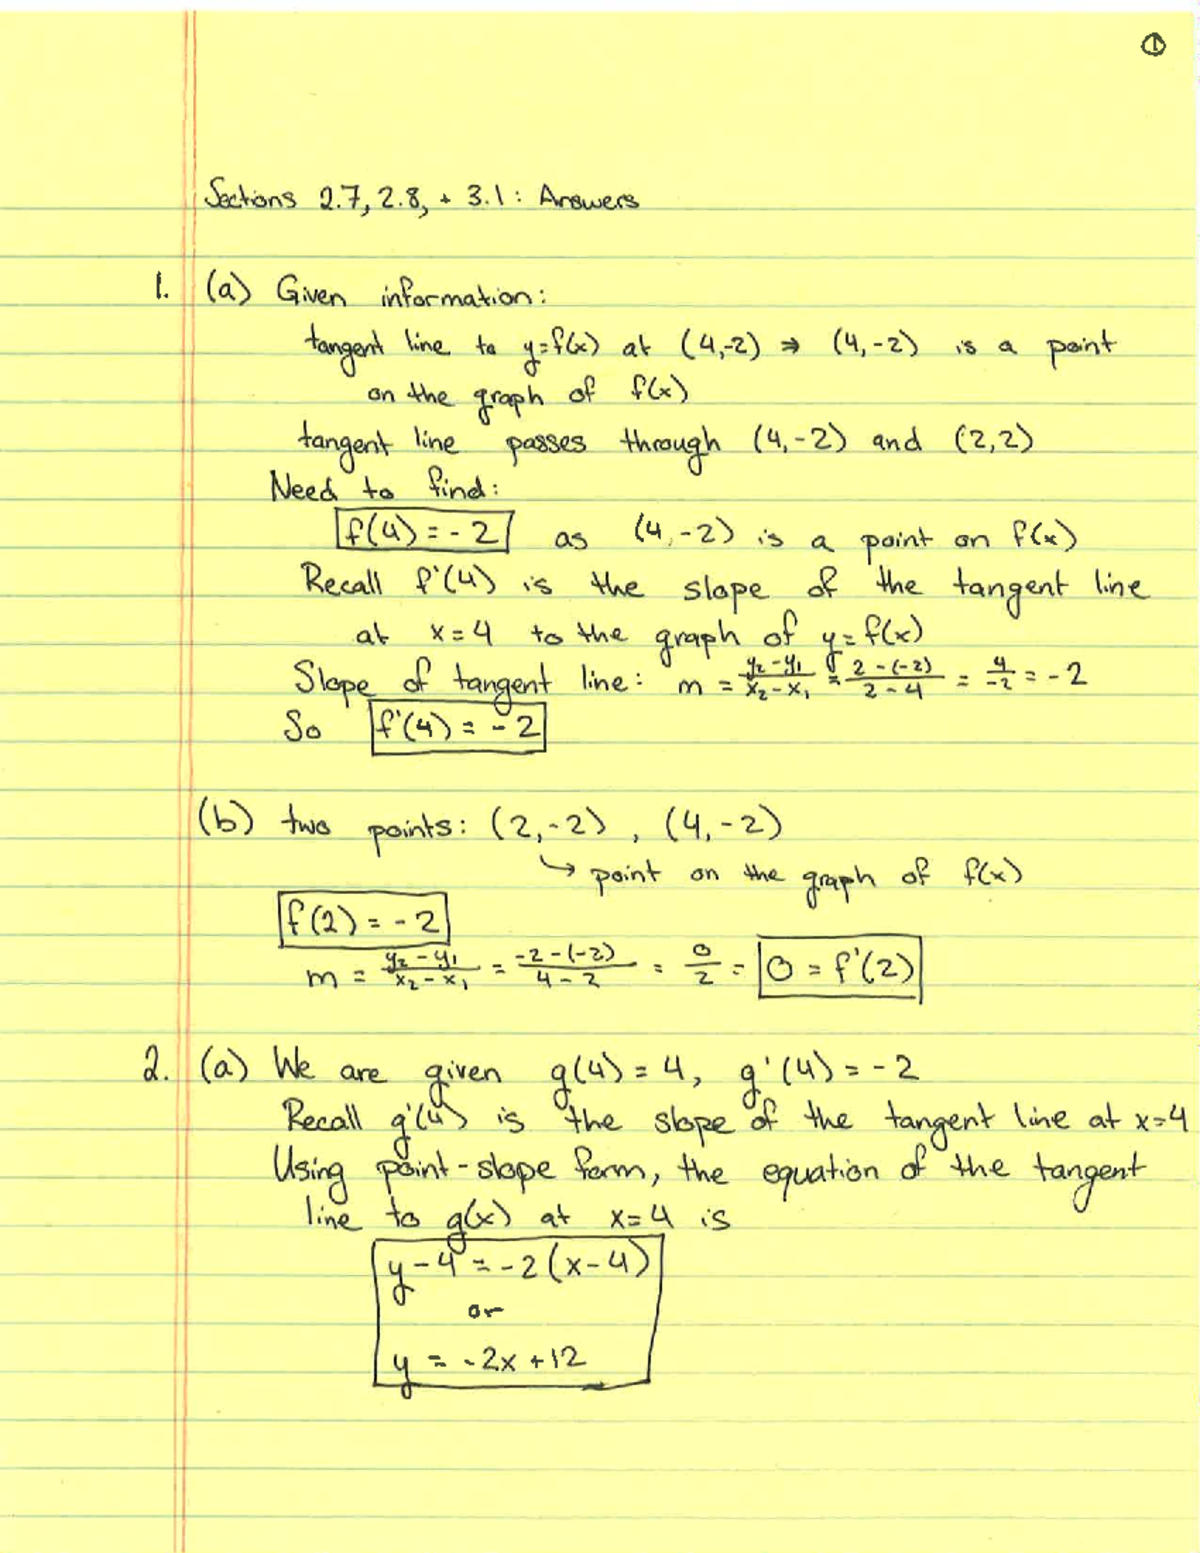 ①
Sections 2.7, 2.8, + 3.1: Answers
1. (a) Given information:
tangent line to y=f(x) at (4,-2) ⇒ (4,-2) is a point
on the graph of f(x)
tangent line passes through (4,-2) and (2,2)
Need to find:
f(4) = -2 as (4,-2) is a point on f(x)
Recall f'(4) is the slope of the tangent line
at x=4 to the graph of y=f(x)
Slope of tangent line: m = y₂-y₁/x₂-x₁ = 2-(-2)/2-4 = 4/-2 = -2
So f'(4) = -2
(b) two points: (2,-2), (4,-2)
↳ point on the graph of f(x)
f(2) = -2
m = y₂-y₁/x₂-x₁ = -2-(-2)/4-2 = 0/2 = 0 = f'(2)
2. (a) We are given g(4) = 4, g'(4) = -2
Recall g'(4) is the slope of the tangent line at x=4
Using point-slope form, the equation of the tangent
line to g(x) at x=4 is
y-4 = -2(x-4)
or
y = -2x+12